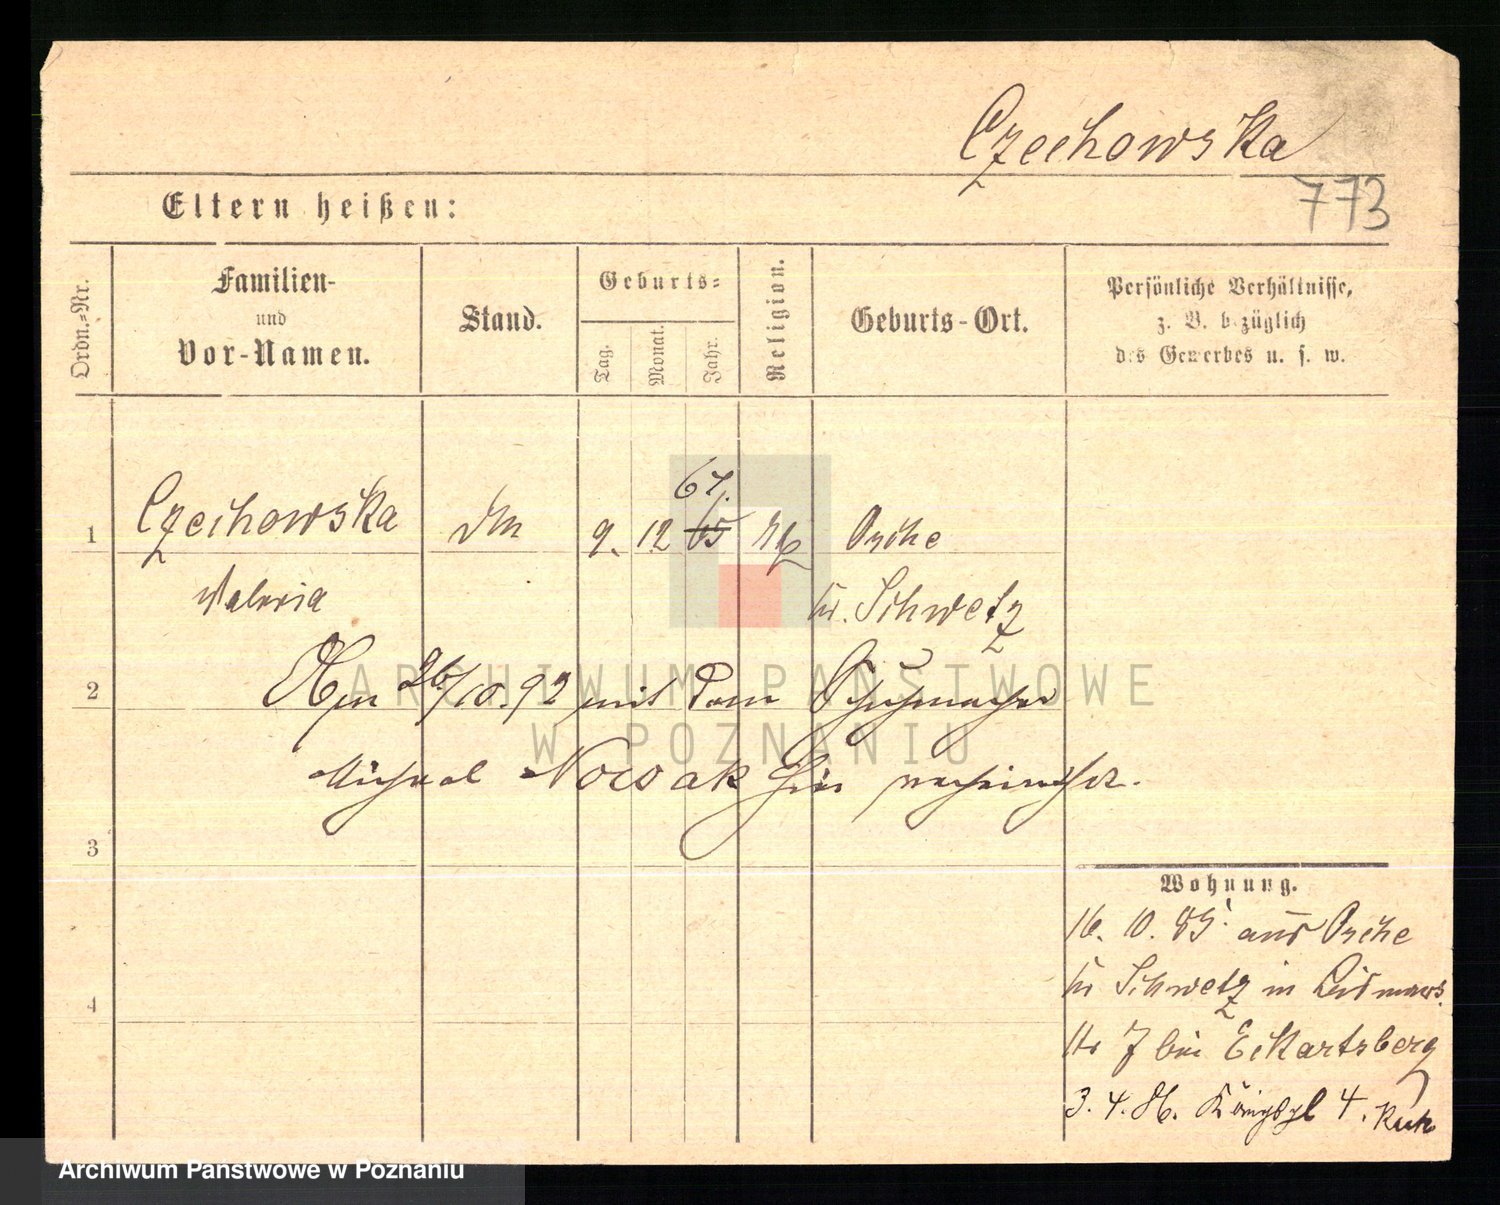 Czechowska
773
Eltern heißen:
Ordn.-Nr.
Familien-
und
Vor-Namen.
Stand.
Geburts-
Tag.
Monat.
Jahr.
Religion.
Geburts-Ort.
Persönliche Verhältnisse,
z. B. bezüglich
des Gewerbes u. s. w.
67.
1 Czechowska 9. 12 65 Osche
Valeria Kr. Schwetz
2 26/10. 92 mit dem Schuhmacher
Michael Nowak hier verheirathet.
3
Wohnung.
16. 10. 85. aus Osche
Kr Schwetz in Bismark
4
Str 7 bei Eckartsberg
3. 4. 86. Königspl 4.
ARCHIWUM PAŃSTWOWE
W POZNANIU
Archiwum Państwowe w Poznaniu